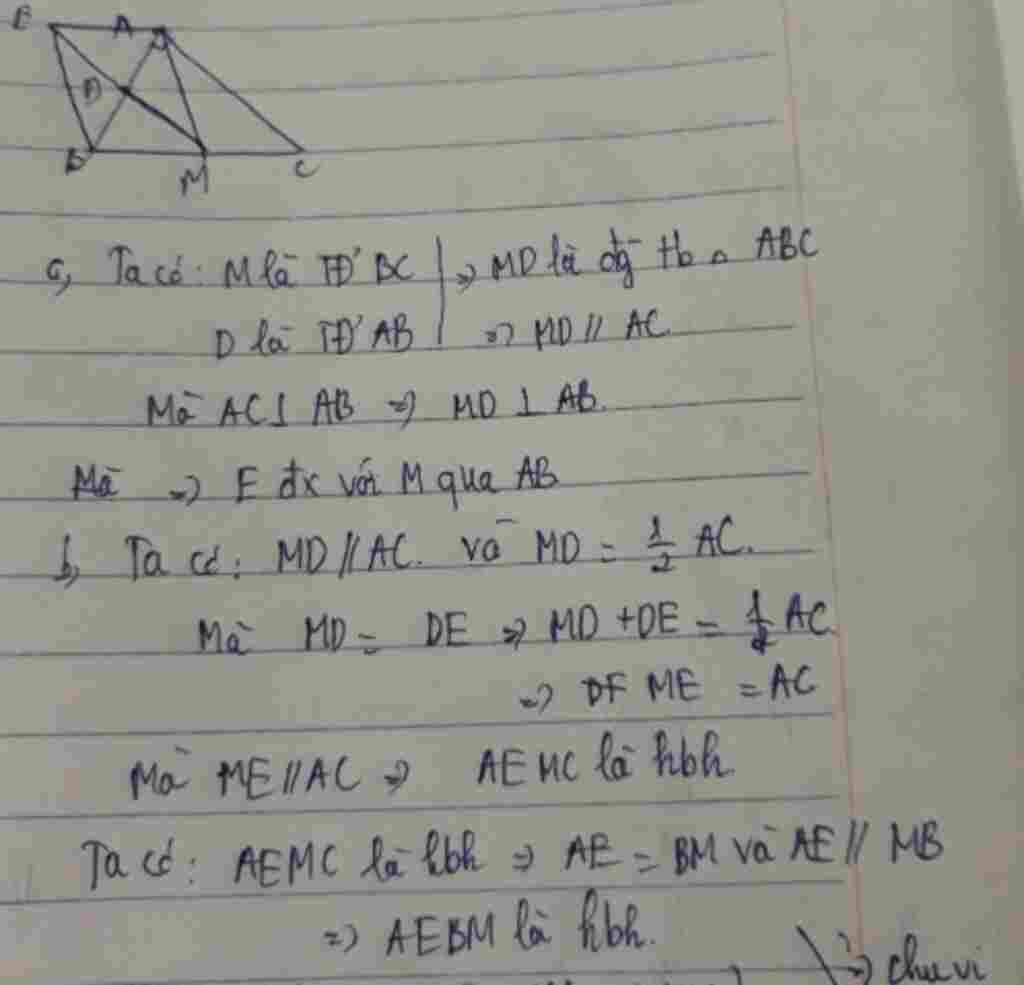 E A
D
B M C
a, Ta có: M là TĐ' BC | => MD là đg tb △ ABC
D là TĐ' AB | => MD // AC
Mà AC ⊥ AB => MD ⊥ AB.
Mà => E đx với M qua AB
b, Ta có: MD // AC. và MD = 1/2 AC.
Mà MD = DE => MD + DE = AC
=> ME = AC
Mà ME // AC => AEMC là hbh.
Ta có: AEMC là hbh => AE = BM và AE // MB
=> AEBM là hbh.
=> chu vi